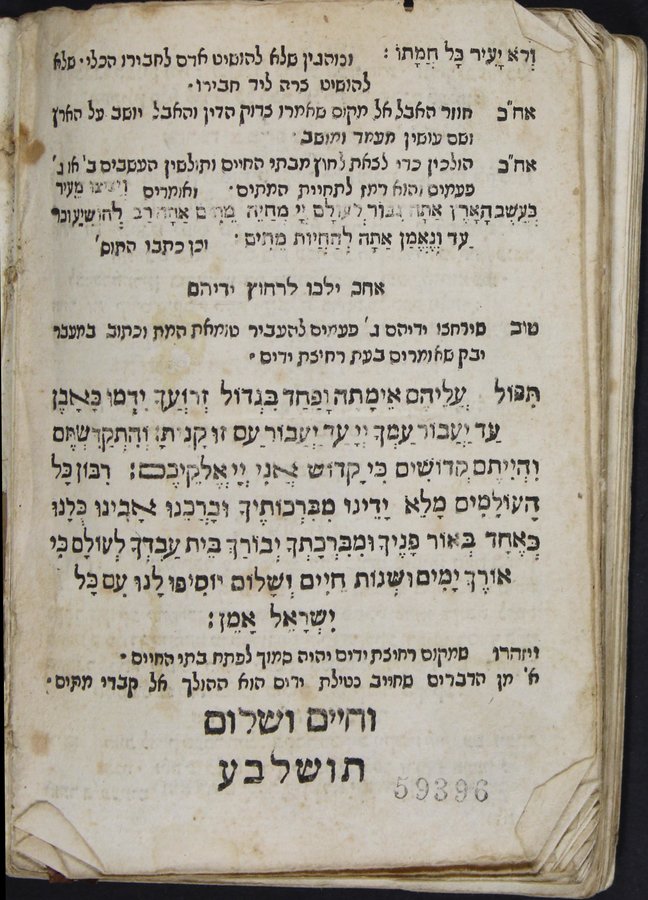 וְלֹא יָעִיר כָּל חֲמָתוֹ : ונוהגין שלא להושיט אדם לחבירו הכלי ׳ שלא
להושיט צרה ליד חבירו ׳
אח״כ חוזר האבל אל מקום שאמרו צדוק הדין והאבל יושב על הארץ
ושם עושין מעמד ומושב ׳
אח״כ הולכין כדי לצאת לחוץ מבתי החיים ותולשין העשבים ב׳ או ג׳
פעמים והוא רמז לתחיית המתים ׳ ואומרים וְיָצִיצוּ מֵעִיר
כְּעֵשֶׂב הָאָרֶץ אַתָּה גִּבּוֹר לְעוֹלָם יְיָ מְחַיֵּה מֵתִים אַתָּה רַב לְהוֹשִׁיעַ וגו׳
עַד וְנֶאֱמָן אַתָּה לְהַחֲיוֹת מֵתִים ׳ וכן כתבו התוס׳
אחכ ילכו לרחוץ ידיהם
טוב שירחצו ידיהם ג׳ פעמים להעביר טומאת המת וכתוב במעבר
יבק שאומרים בעת רחיצת ידים ׳
תִּפּוֹל עֲלֵיהֶם אֵימָתָה וָפַחַד בִּגְדוֹל זְרוֹעֲךָ יִדְּמוּ כָּאָבֶן
עַד יַעֲבוֹר עַמְּךָ יְיָ עַד יַעֲבוֹר עַם זוּ קָנִיתָ : וְהִתְקַדִּשְׁתֶּם
וִהְיִיתֶם קְדוֹשִׁים כִּי קָדוֹשׁ אֲנִי יְיָ אֱלֹקֵיכֶם : רִבּוֹן כָּל
הָעוֹלָמִים מַלֵּא יָדֵינוּ מִבִּרְכוֹתֶיךָ וּבָרְכֵנוּ אָבִינוּ כֻּלָּנוּ
כְּאֶחָד בְּאוֹר פָּנֶיךָ וּמִבִּרְכָתְךָ יְבוֹרַךְ בֵּית עַבְדְּךָ לְעוֹלָם כִּי
אוֹרֶךְ יָמִים וּשְׁנוֹת חַיִּים וְשָׁלוֹם יוֹסִיפוּ לָנוּ עִם כָּל
יִשְׂרָאֵל אָמֵן :
ויזהרו שמקום רחיצת ידים יהיה סמוך לפתח בתי החיים ׳
א׳ מן הדברים שחייב נטילת ידים הוא ההולך אל קברי מתים ׳
וחיים ושלום
תושלבע
59396